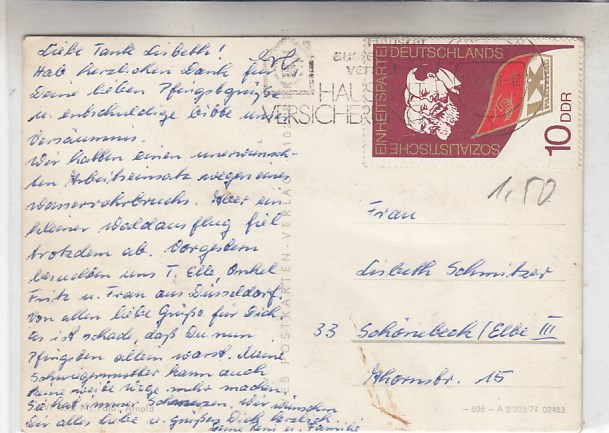 Liebe Tante Lisbeth!
Hab herzlichen Dank für
Deine lieben Pfingstgrüße
u. entschuldige bitte unser
Versäumnis.
Wir hatten einen unerwünsch-
ten Arbeitseinsatz wegen eines
Wasserrohrbruchs. Aber ein
kleiner Waldausflug fiel
trotzdem ab. Vorgestern
besuchten uns T. Elle Onkel
Fritz u. Frau aus Düsseldorf.
Von allen liebe Grüße für Dich
ist schade, daß Du nun
Pfingsten allein warst. Meine
Schwiegermutter kann auch
keine weite Wege mehr machen
Sie hat immer Schmerzen. Wir wünschen
Dir alles Gute u. grüßen Dich herzlich
u. Familie
Arnold
POSTKARTEN-VERLA
HAUS
VERSICHER
SOZIALISTISCHE
EINHEITSPARTEI DEUTSCHLANDS
IX.
10 DDR
1,50
Frau
Lisbeth Schmitzer
33 Schönebeck/Elbe III
Thornstr. 15
A 2 225/74 02483